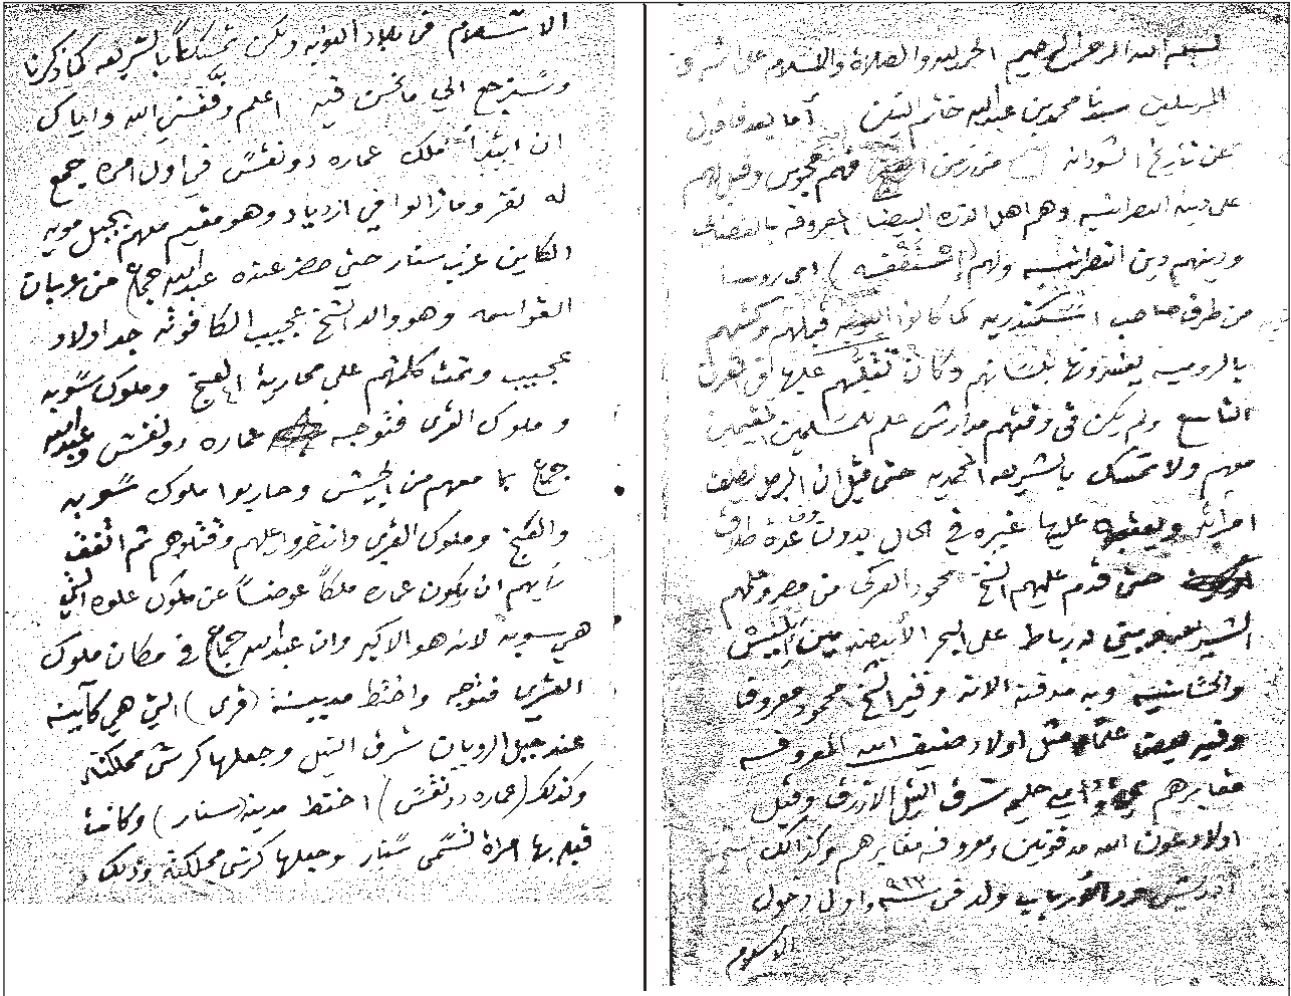 بسم الله الرحمن الرحيم الحمد لله والصلاة والسلام على اشرف
المرسلين سيدنا محمد بن عبدالله خاتم النبيين أما بعد فاقول
عن تاريخ السودان من زمن فهم مجوس وقبلهم
على دين النصرانيه وهم اهل الدره البيضا المعروفه
ودينهم دين النصرانيه ولهم (اسقفيه)
من طرف صاحب اسكندريه كما كانوا النوبه قبلهم وكتبهم
بالروميه يفسرونها بلسانهم وكان تغلبهم عليها في القرن
التاسع ولم يكن في وقتهم مدارس علم للمسلمين المقيمين
معهم ولا تمسك بالشريعه المحمديه حتى قيل ان الرجل يطلق
امرأته عليها غيره في الحال بدون عدة
حتى قدم عليهم الشيخ محمود العركي من مصر وعلمهم
وبنى له رباط على البحر الأبيض بين اليس
والحسانيه وبه مدفنه الان وقبر الشيخ محمود معروفا
وقبره علماء مثل اولاد ضيف الله المعروفه
مقابرهم حليه شرق النيل الازرق وقيل
اولاد عون الله مدفونين ومعروفه مقابرهم وكذالك الشيخ
ادريس ود الارباب ولد في سنه ٩١٣ واول دخول
الاسلام
الاسلام في بلاد النوبه ولكن تمسكاً بالشريعه كما ذكرنا
وسنرجع الى ما نحن فيه اعلم وفقني الله واياك
ان ابتدأ ملك عماره دونقس في اول امره جمع
له نفر وما زالوا في ازدياد وهو مقيم معهم بجبل مويه
الكاين غرب سنار حتى حضر عنده عبدالله جماع من عربان
القواسمه وهو والد الشيخ عجيب الكافوته جد اولاد
عجيب وتمت كلمتهم على محاربة الفنج وملوك سوبه
وملوك القرى فتوجه عماره دونقس وعبدالله
جماع بما معهم من الجيش وحاربوا ملوك سوبه
والفنج وملوك القرى وانتصروا عليهم وقتلوهم ثم اتفق
رأيهم ان يكون عماره ملكاً عوضاً عن ملوك علوه التي
هي سوبه لانه هو الاكبر وان عبدالله جماع في مكان ملوك
القرى فتوجه واختط مدينة (قرى) التي هي كاينه
عند جبل الرويان شرق النيل وجعلها كرسي مملكته
وكذلك (عماره دونقس) اختط مدينة (سنار) وكانت
قبله بها امرأة تسمى سنار وجعلها كرسي مملكته وذلك